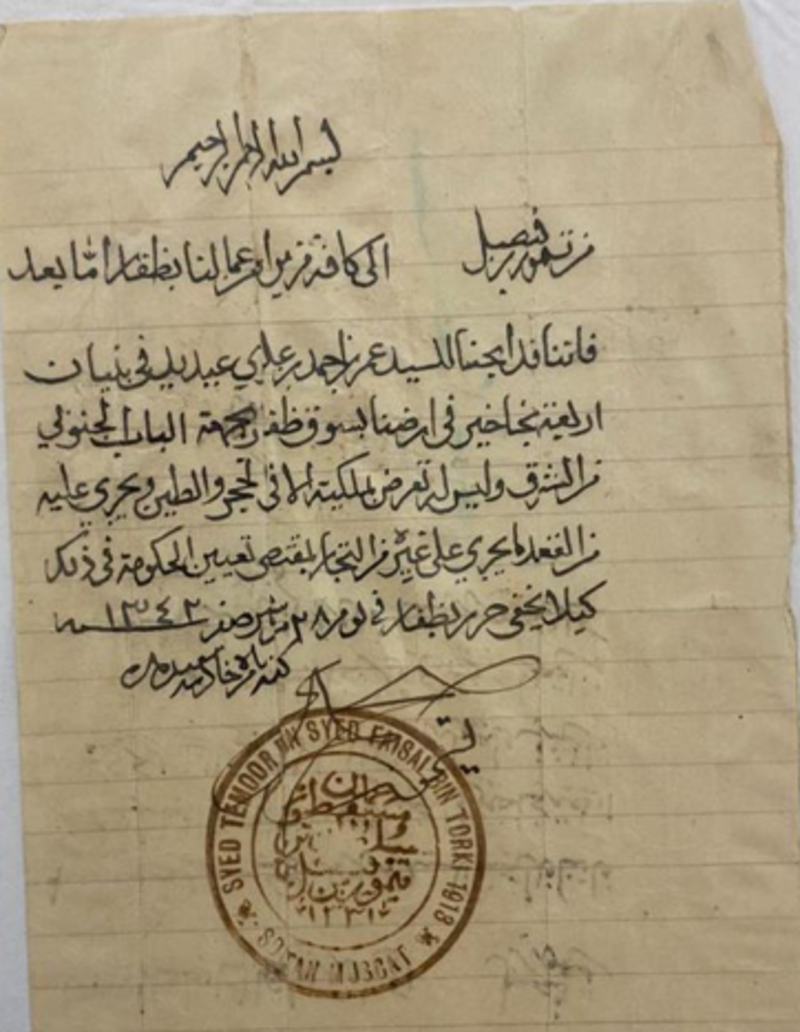 بسم الله الرحمن الرحيم
من تيمور بن فيصل الى كافة من يراه من عمالنا بظفار اما بعد
فاننا قد ابحنا للسيد عمر بن احمد بن علي عبديد في بنيان
اربعة بخاخير في ارضنا بسوق ظفار بجهة الباب الجنوبي
من الشرق وليس له تعرض بملكيته الا في الحجر والطين ويجري عليه
من القعد ما يجري على غيره من التجار بمقتضى تعيين الحكومة في ذلك
كيلا يخفى حرر بظفار في يوم ٢٨ من شهر صفر ١٣٤٢ سنه
كتبه بامره خادمه
SYED TEMOOR BIN SYED FAISAL BIN TORKI 1913
تيمور بن فيصل
سلطان مسقط
عمان
SULTAN MUSCAT